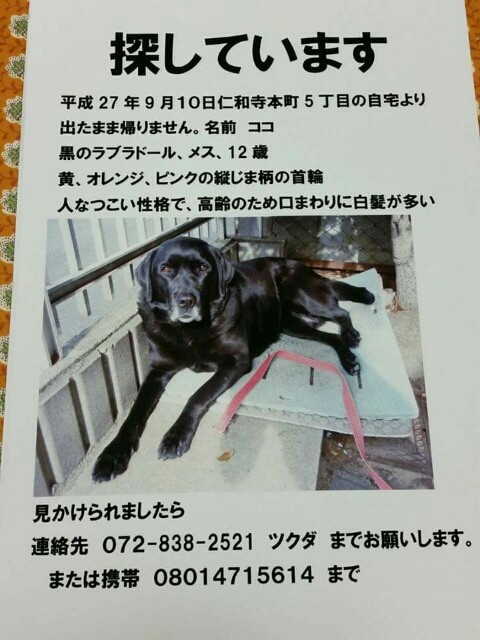 探しています
平成27年9月10日仁和寺本町5丁目の自宅より
出たまま帰りません。名前 ココ
黒のラブラドール、メス、12歳
黄、オレンジ、ピンクの縦じま柄の首輪
人なつこい性格で、高齢のため口まわりに白髪が多い
見かけられましたら
連絡先 072-838-2521 ツクダ までお願いします。
または携帯 08014715614 まで